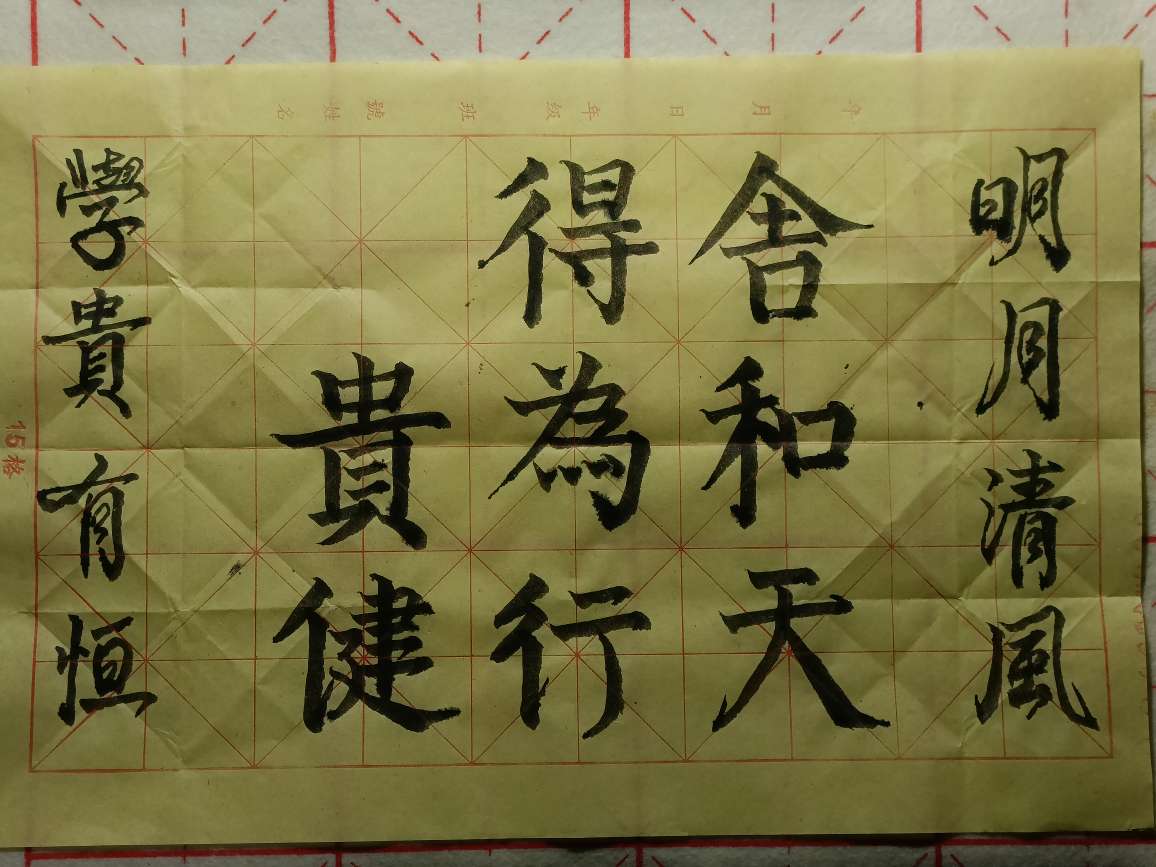 年 月 日 年級 班 號 姓名
明月清風
舍得
和為貴
天行健
學貴有恒
15格